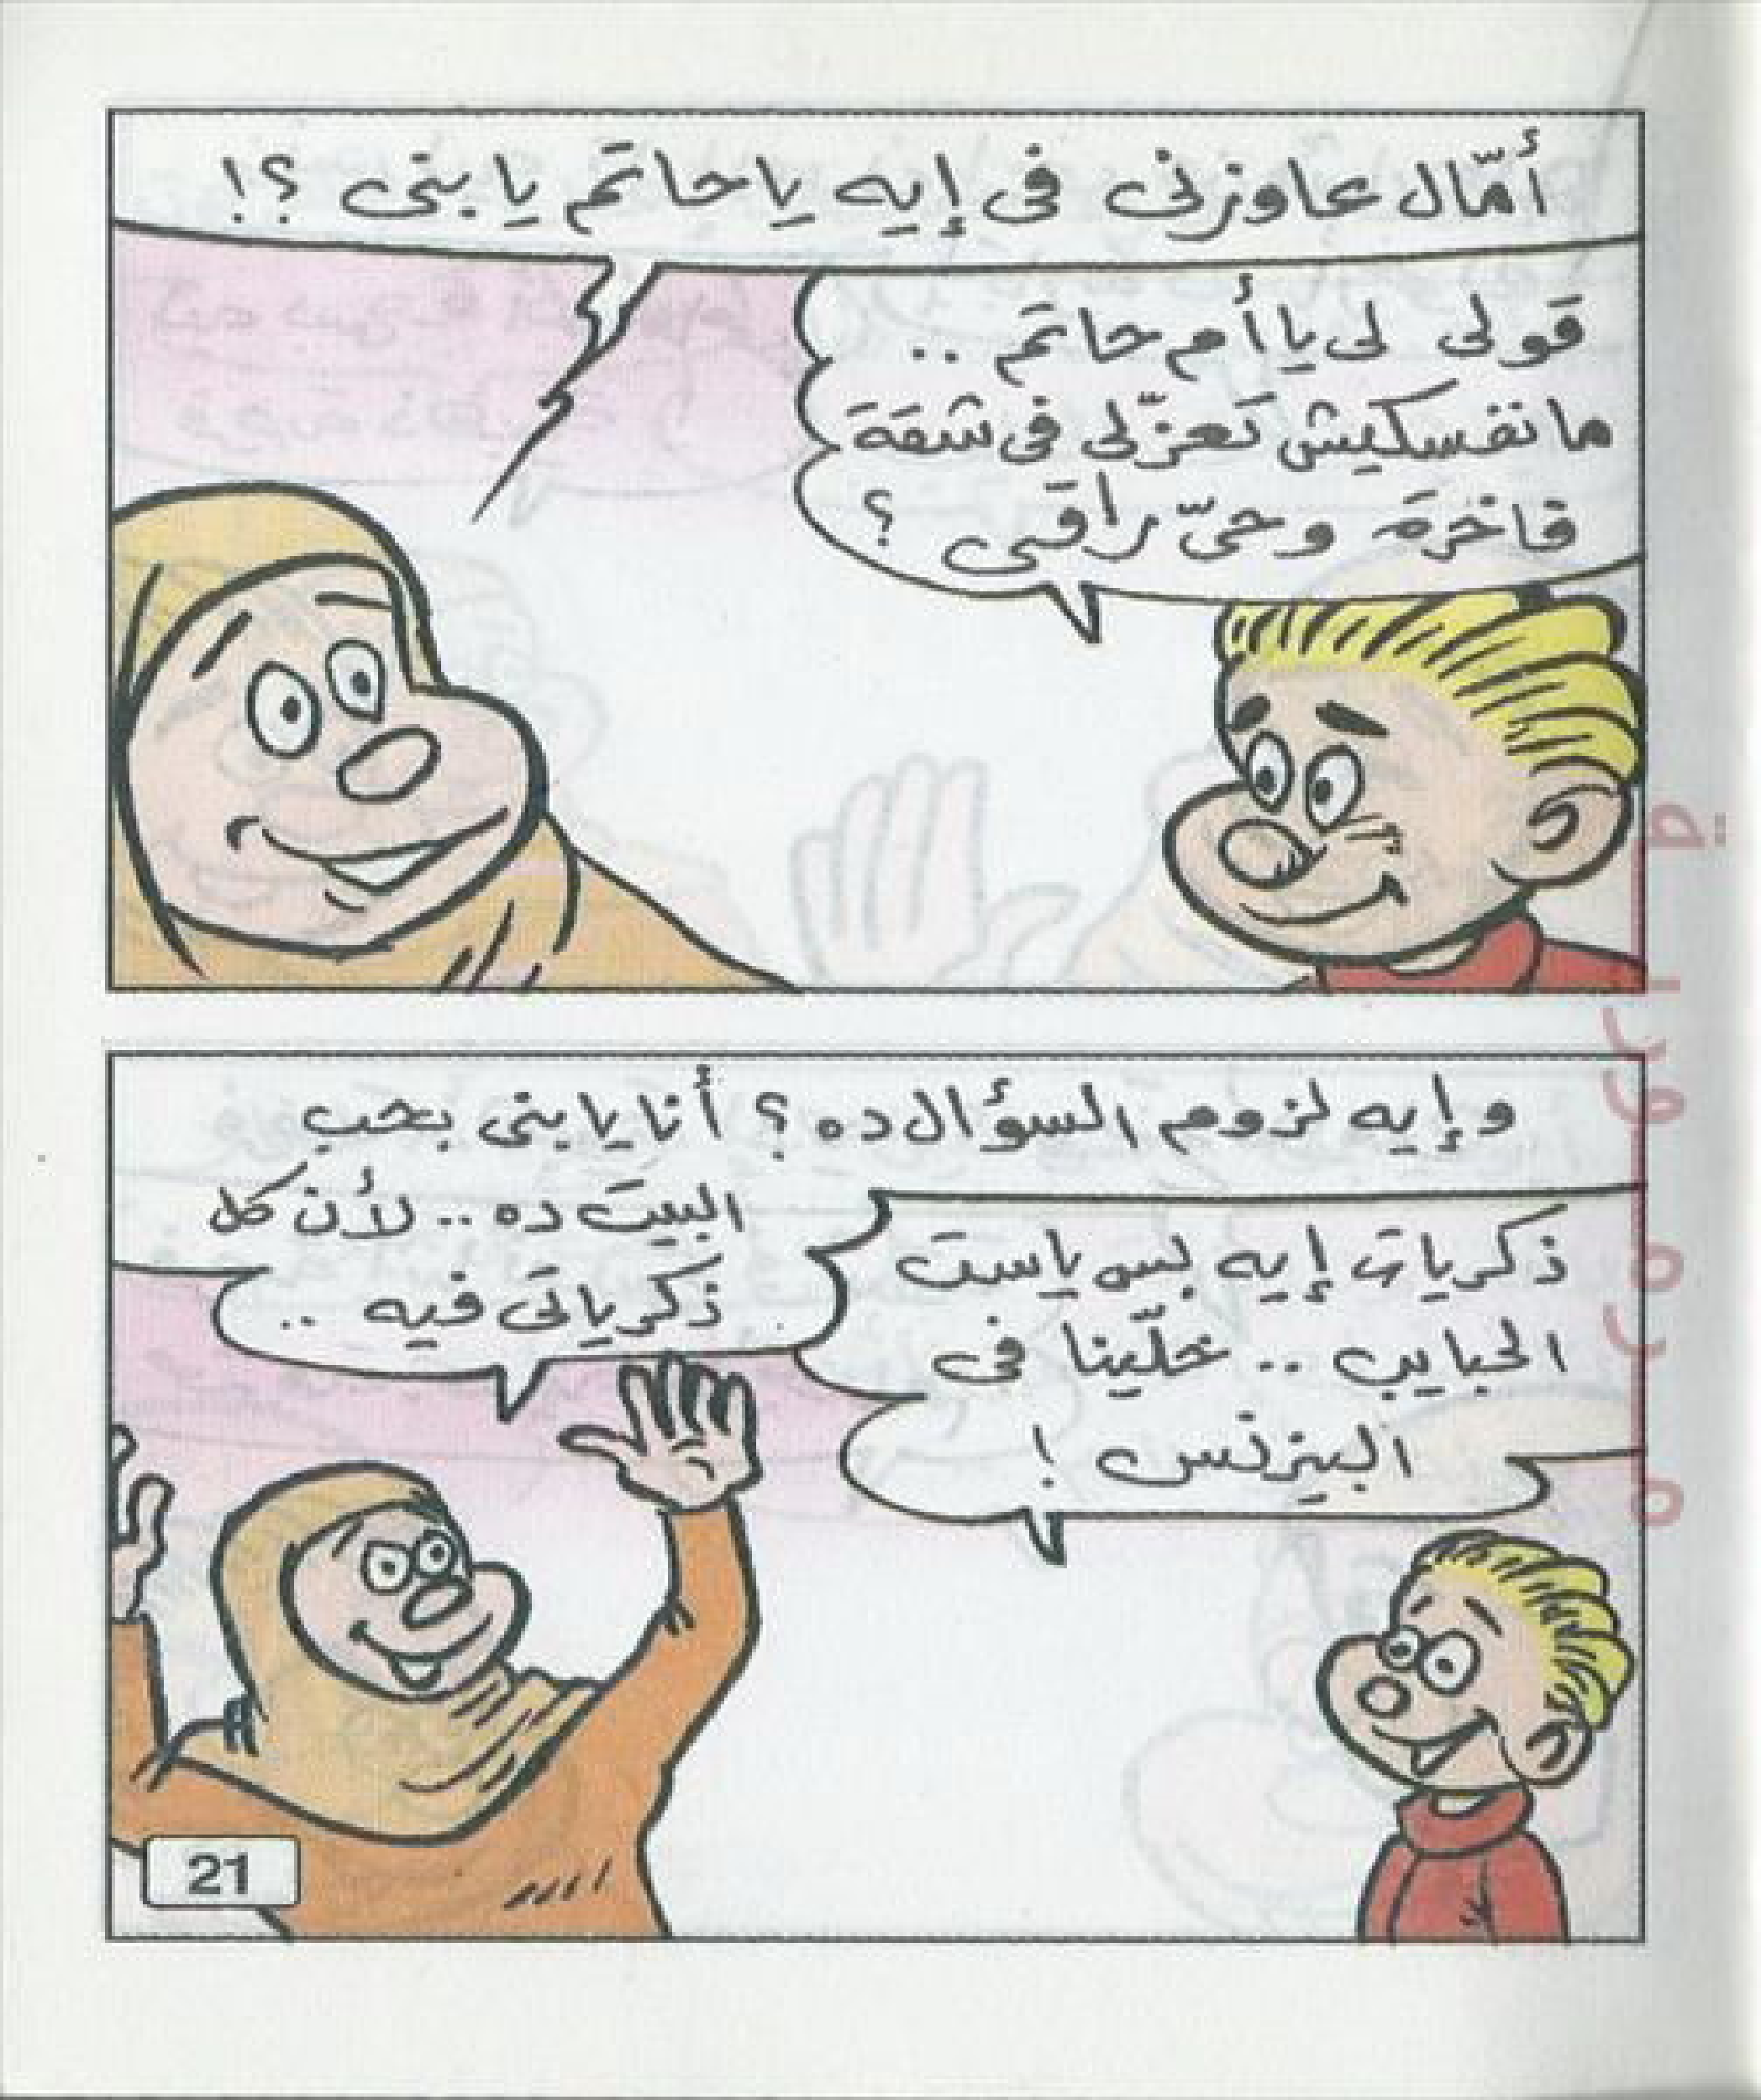 أمّال عاوزنى فى إيه ياحاتم يا بنى ؟!
قولى لى يا أم حاتم ..
ما نفسكيش تعزّلى فى شقة
فاخرة وحىّ راقى ؟
وإيه لزوم السؤال ده ؟ أنا يا بنى بحب
البيت ده .. لأن كل
ذكرياتى فيه ..
ذكريات إيه بس ياست
الحبايب .. خلّينا فى
البيزنس !
21